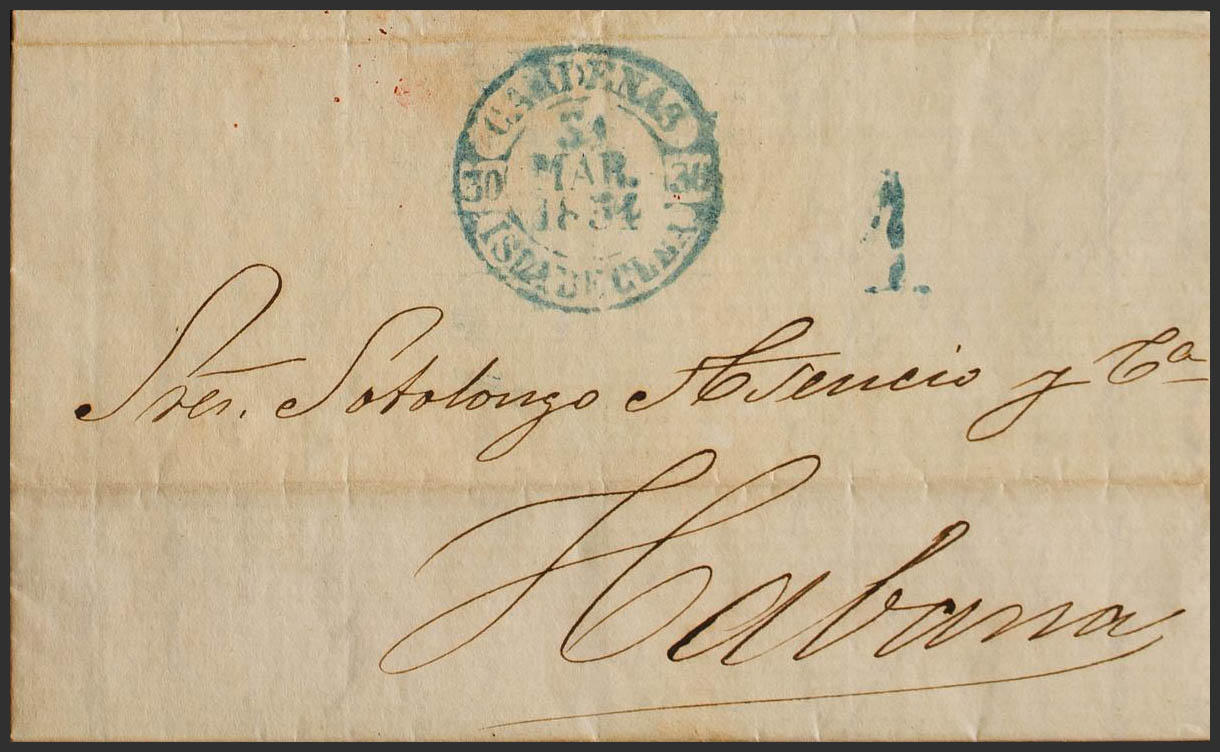 CARDENAS
31
MAR.
1854
30 30
ISLA DE CUBA
1
Sres. Sotolongo Asencio y Ca
Habana